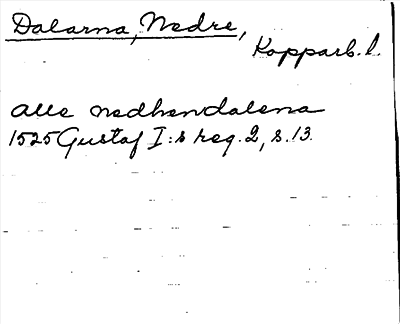 Dalarna, Nedre,
Kopparb. l.
alle nedhendalena
1525 Gustaf I:s reg. 2, s. 13.